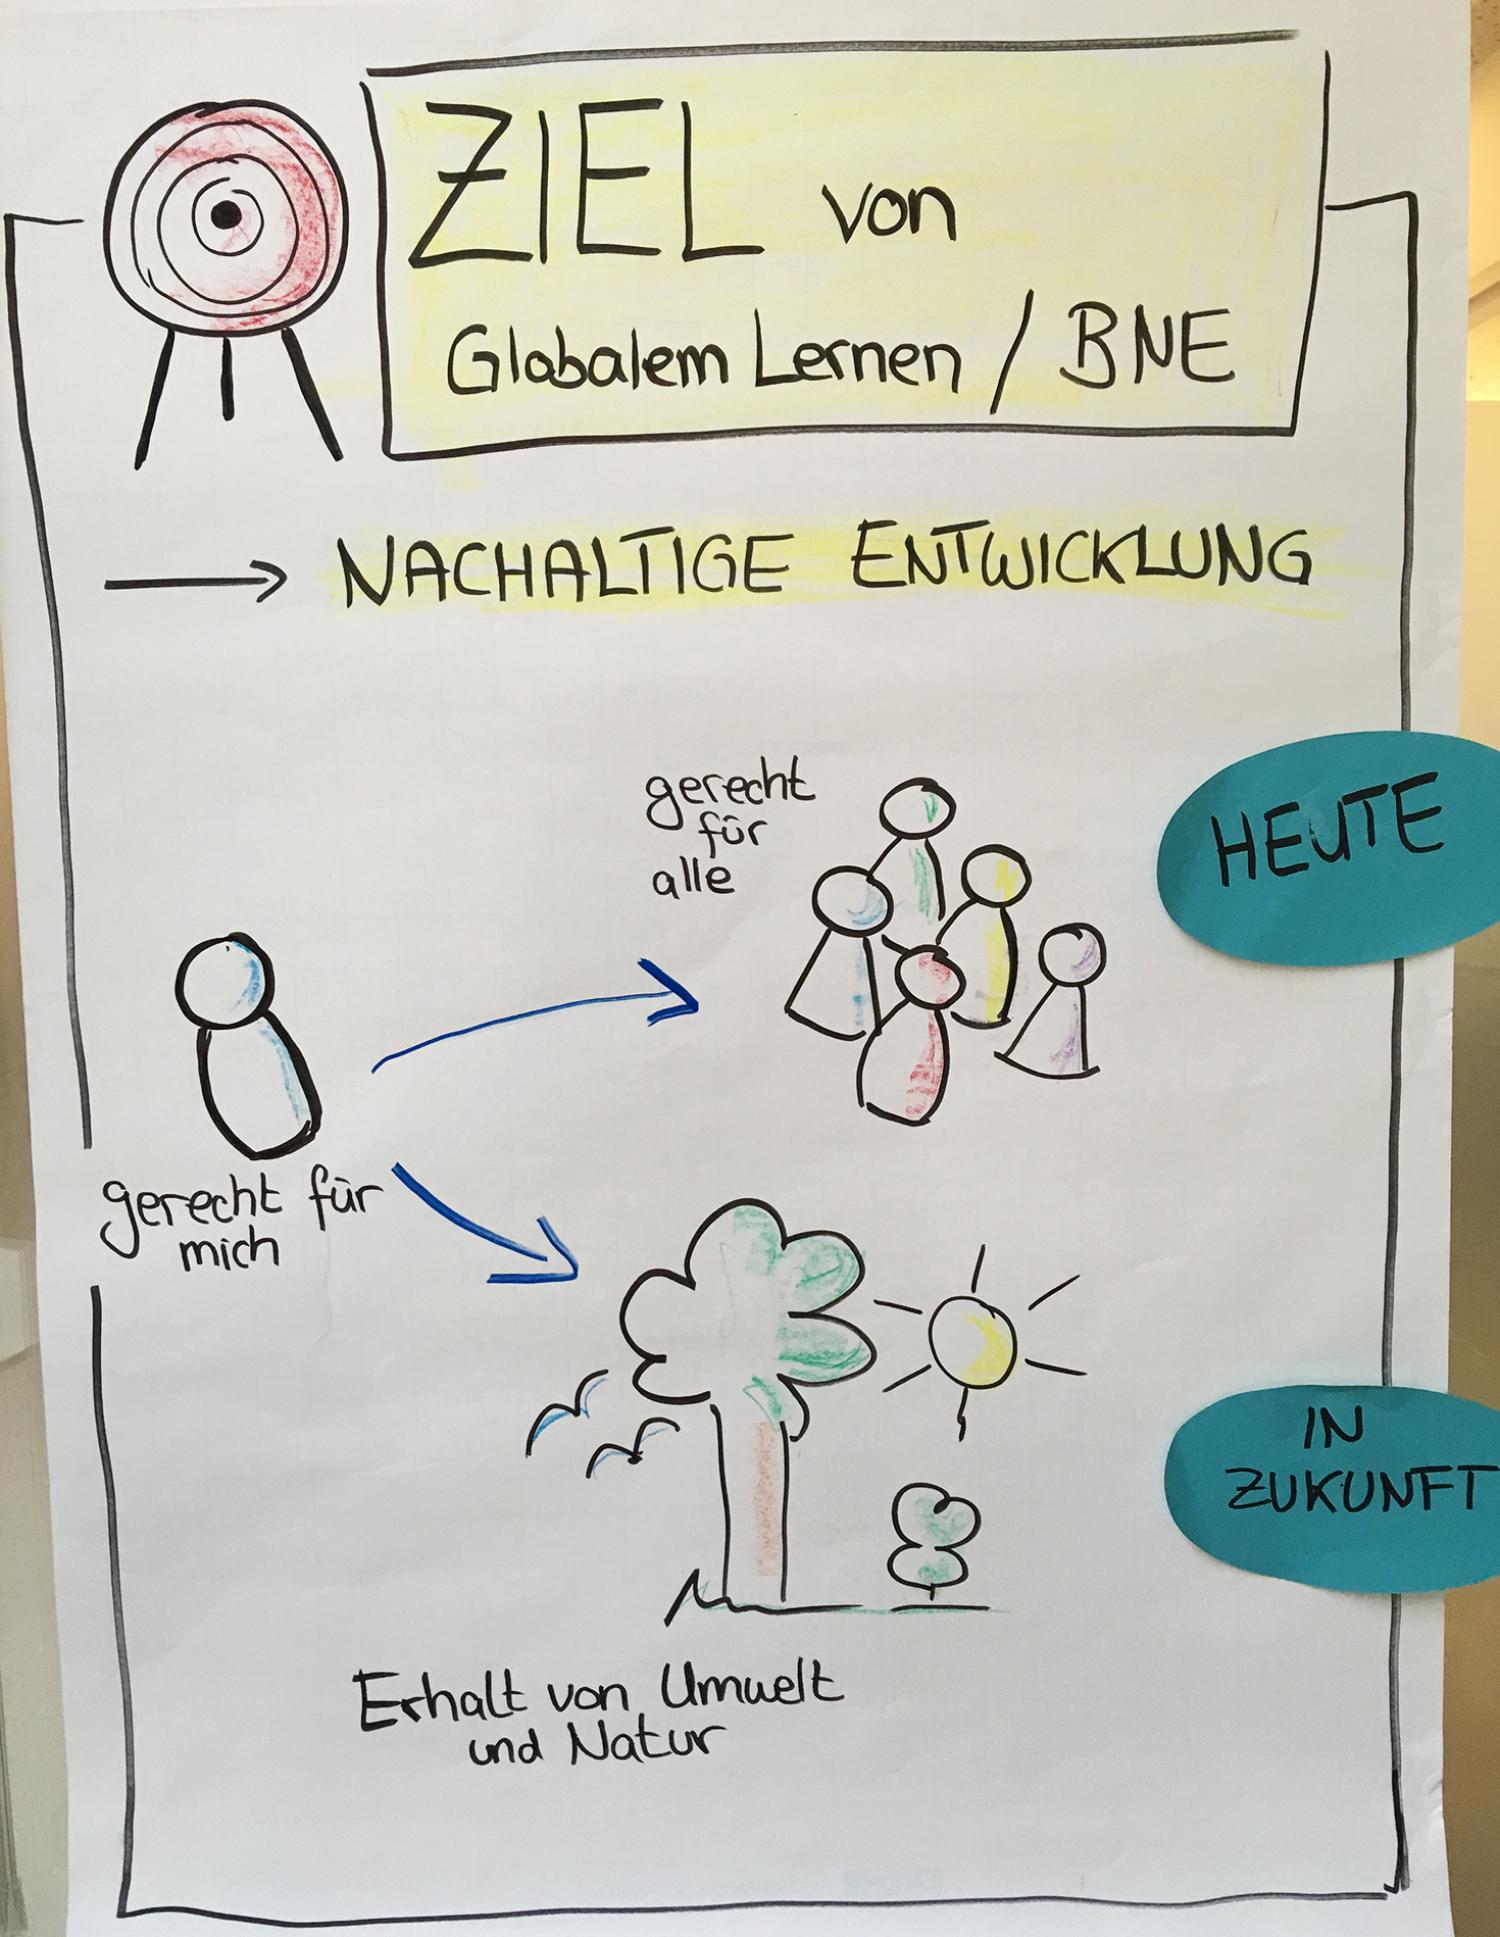 ZIEL von
Globalem Lernen / BNE
NACHALTIGE ENTWICKLUNG
gerecht
für
alle
HEUTE
gerecht für
mich
IN
ZUKUNFT
Erhalt von Umwelt
und Natur